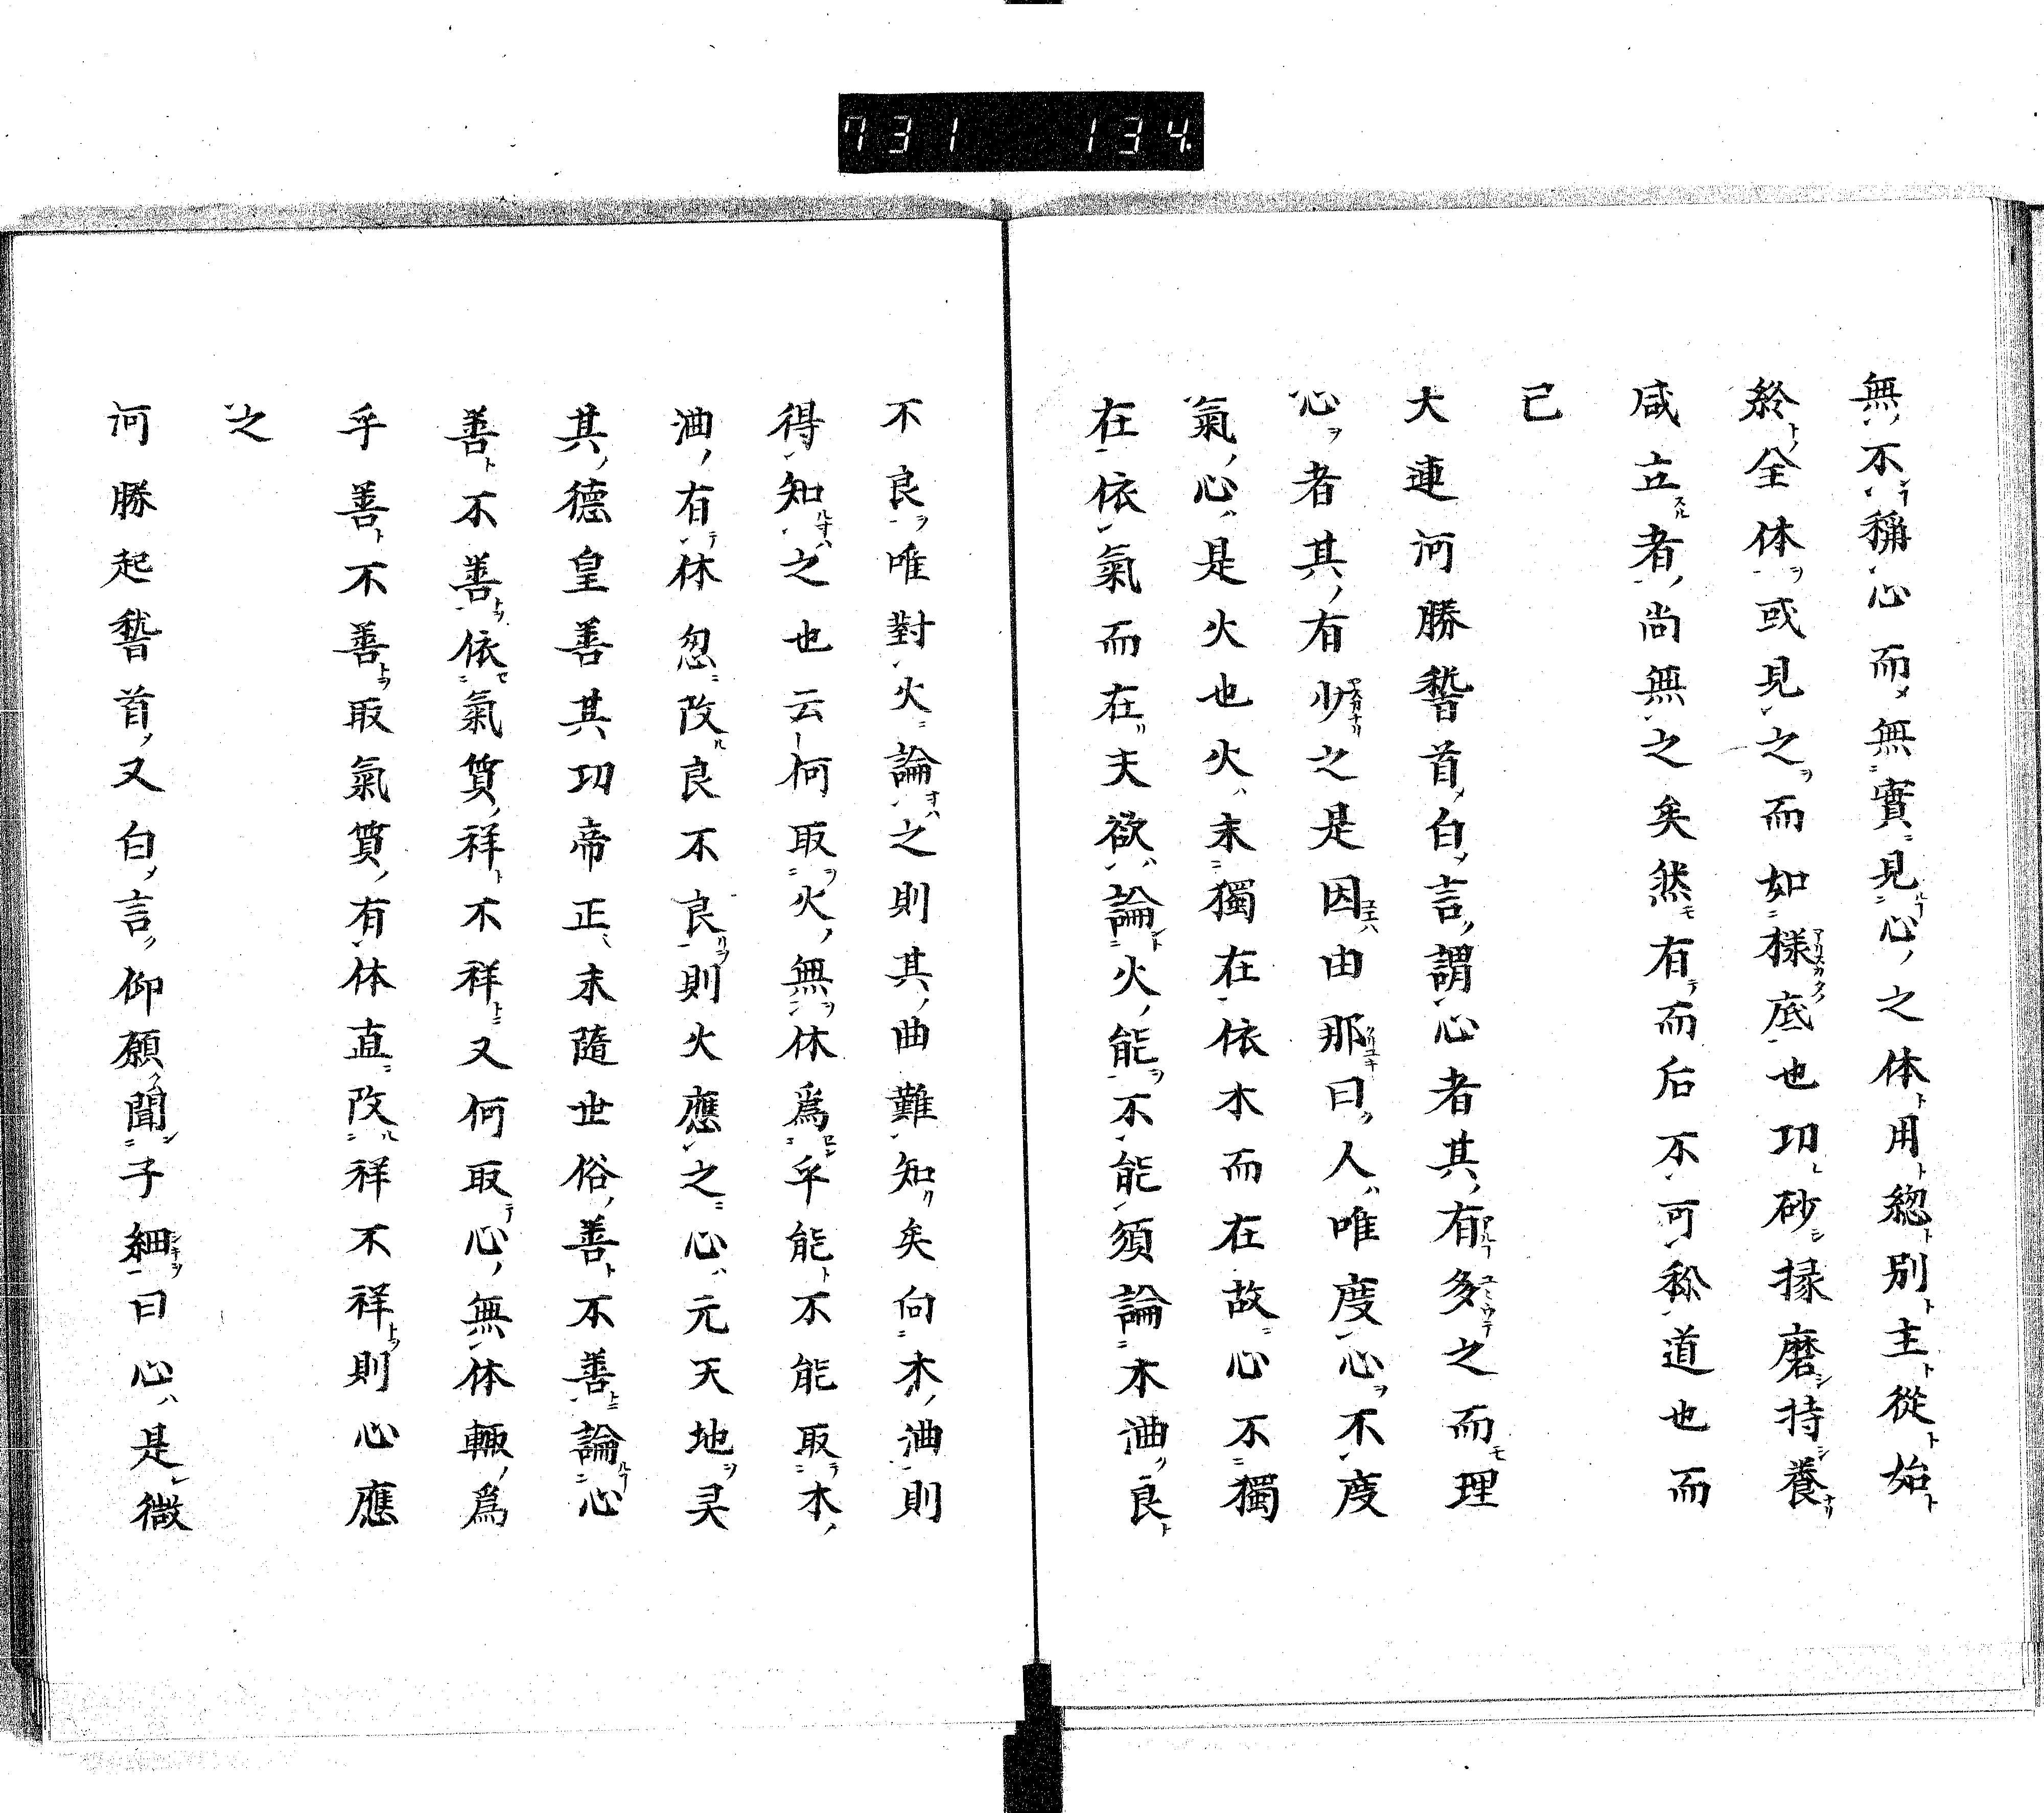 731 134
無不稱心而無實見心之体用総別主從始
終全体或見之而如樣底也功砂掾磨持養
咸立者尚無之矣然有而后不可称道也而
已
大連河勝稽首白言謂心者其有多之而理
心者其有少之是因由那曰人唯度心不度
氣心是火也火末獨在依木而在故心不獨
在依氣而在夫欲論火能不能須論木油良
不良唯對火論之則其曲難知矣向木油則
得知之也云何取火無体爲乎能不能取木
油有体忽改良不良則火應之心元天地灵
其德皇善其功帝正末隨世俗善不善論心
善不善依氣質祥不祥又何取心無体輙爲
乎善不善取氣質有体直改祥不祥則心應
之
河勝起稽首又白言仰願聞子細曰心是微